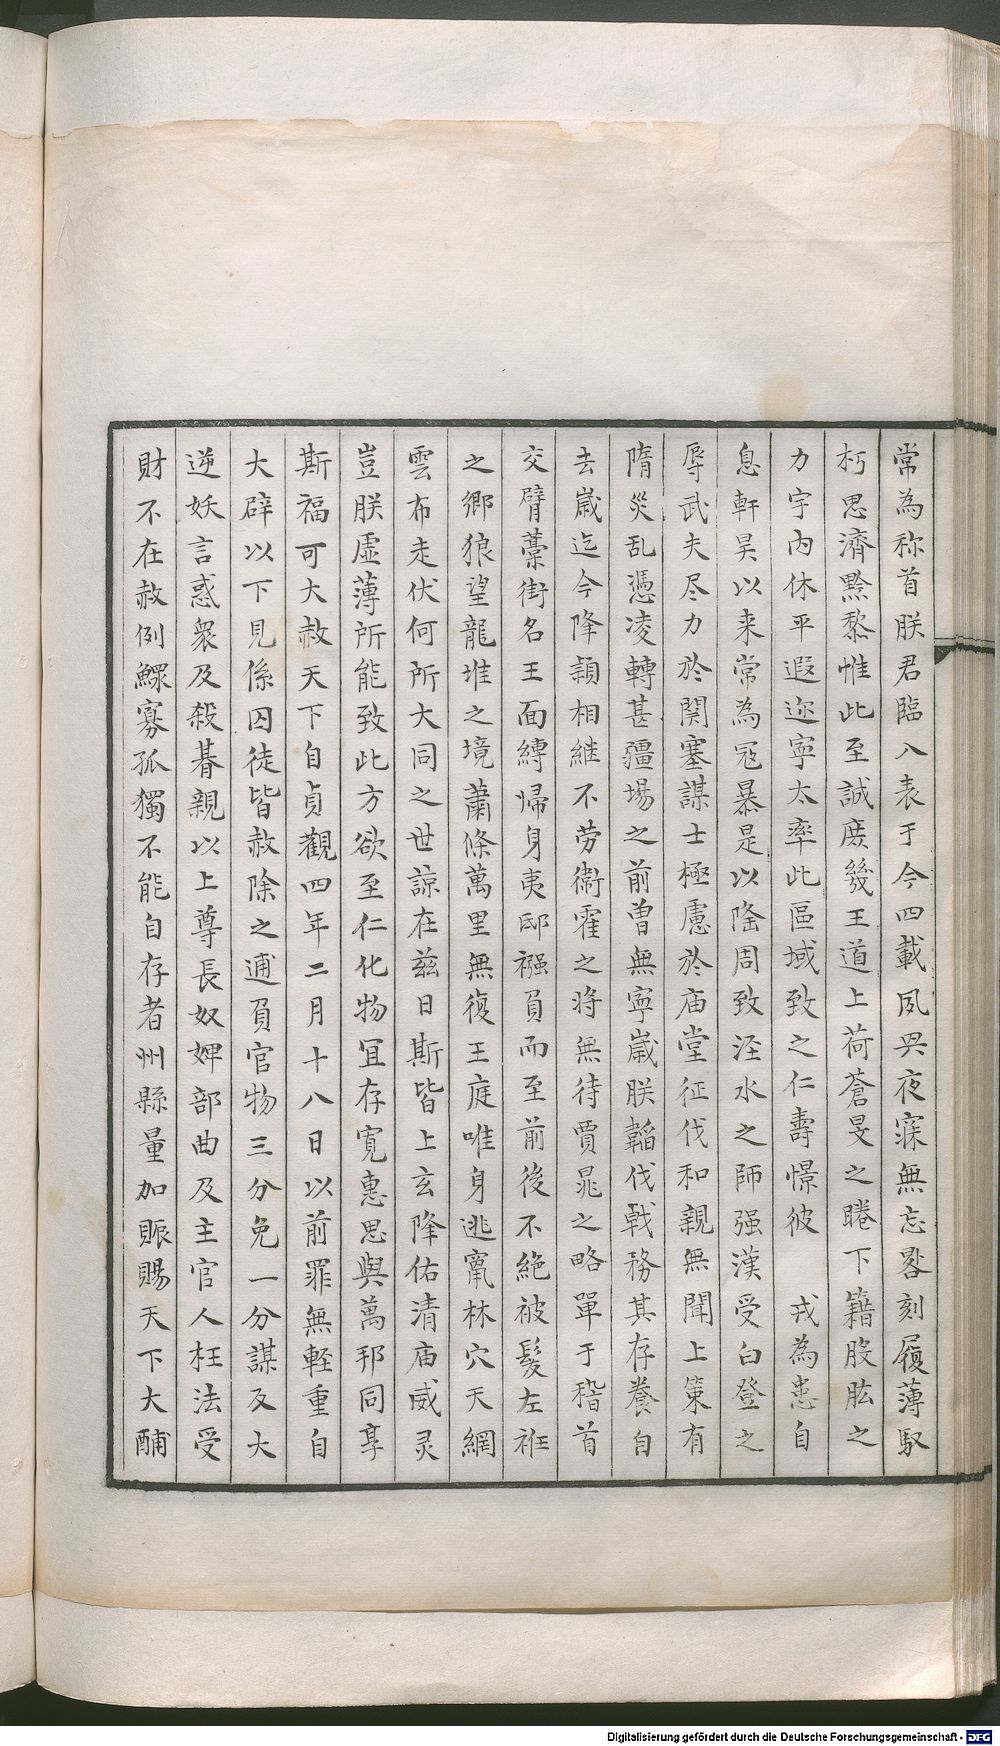 常為称首朕君臨八表于今四載夙興夜寐無忘晷刻履薄馭
朽思濟黔黎惟此至誠庶幾王道上荷蒼旻之睠下籍股肱之
力宇内休平遐迩寧太率此區域致之仁壽憬彼 戎為患自
息軒昊以来常為冦暴是以隆周致泾水之師强漢受白登之
辱武夫尽力於関塞謀士極慮於庙堂征伐和親無聞上策有
隋災乱憑凌轉甚疆場之前曽無寧嵗朕韜伐戟務其存養自
去嵗迄今降頴相継不劳衞霍之将無待賈晁之略單于稽首
交臂藁街名王面縛帰身夷邸襁負而至前後不絶被髮左袵
之郷狼望龍堆之境蕭條萬里無復王庭唯身逃竄林穴天網
雲布走伏何所大同之世諒在兹日斯皆上玄降佑清庙威灵
豈朕虚薄所能致此方欲至仁化物冝存寛惠思與萬邦同享
斯福可大赦天下自貞觀四年二月十八日以前罪無軽重自
大辟以下見係囚徒皆赦除之逋負官物三分免一分謀及大
逆妖言惑衆及殺朞親以上尊長奴婢部曲及主官人枉法受
財不在赦例鰥寡孤獨不能自存者州縣量加賑賜天下大酺
Digitalisierung gefördert durch die Deutsche Forschungsgemeinschaft - DFG